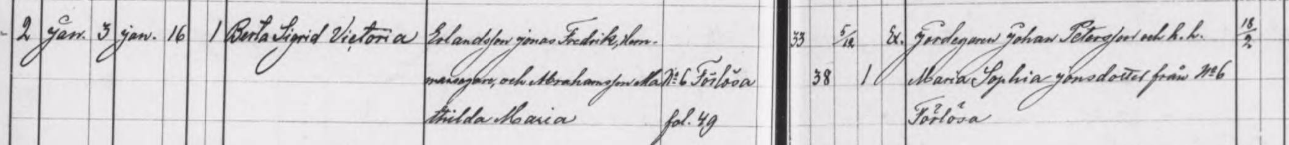 2 Jan. 3 jan. 16 1 Berta Sigrid Victoria Erlandsson Jonas Fredrik, Hem- 33 5/12 Ex. Jordegaren Johan Petersson och h. h. 18/2
mansegare, och Abrahamsson Ma No 6 Förlösa 38 1 Maria Sophia Jonsdotter från No 6
thilda Maria fol. 49 Förlösa